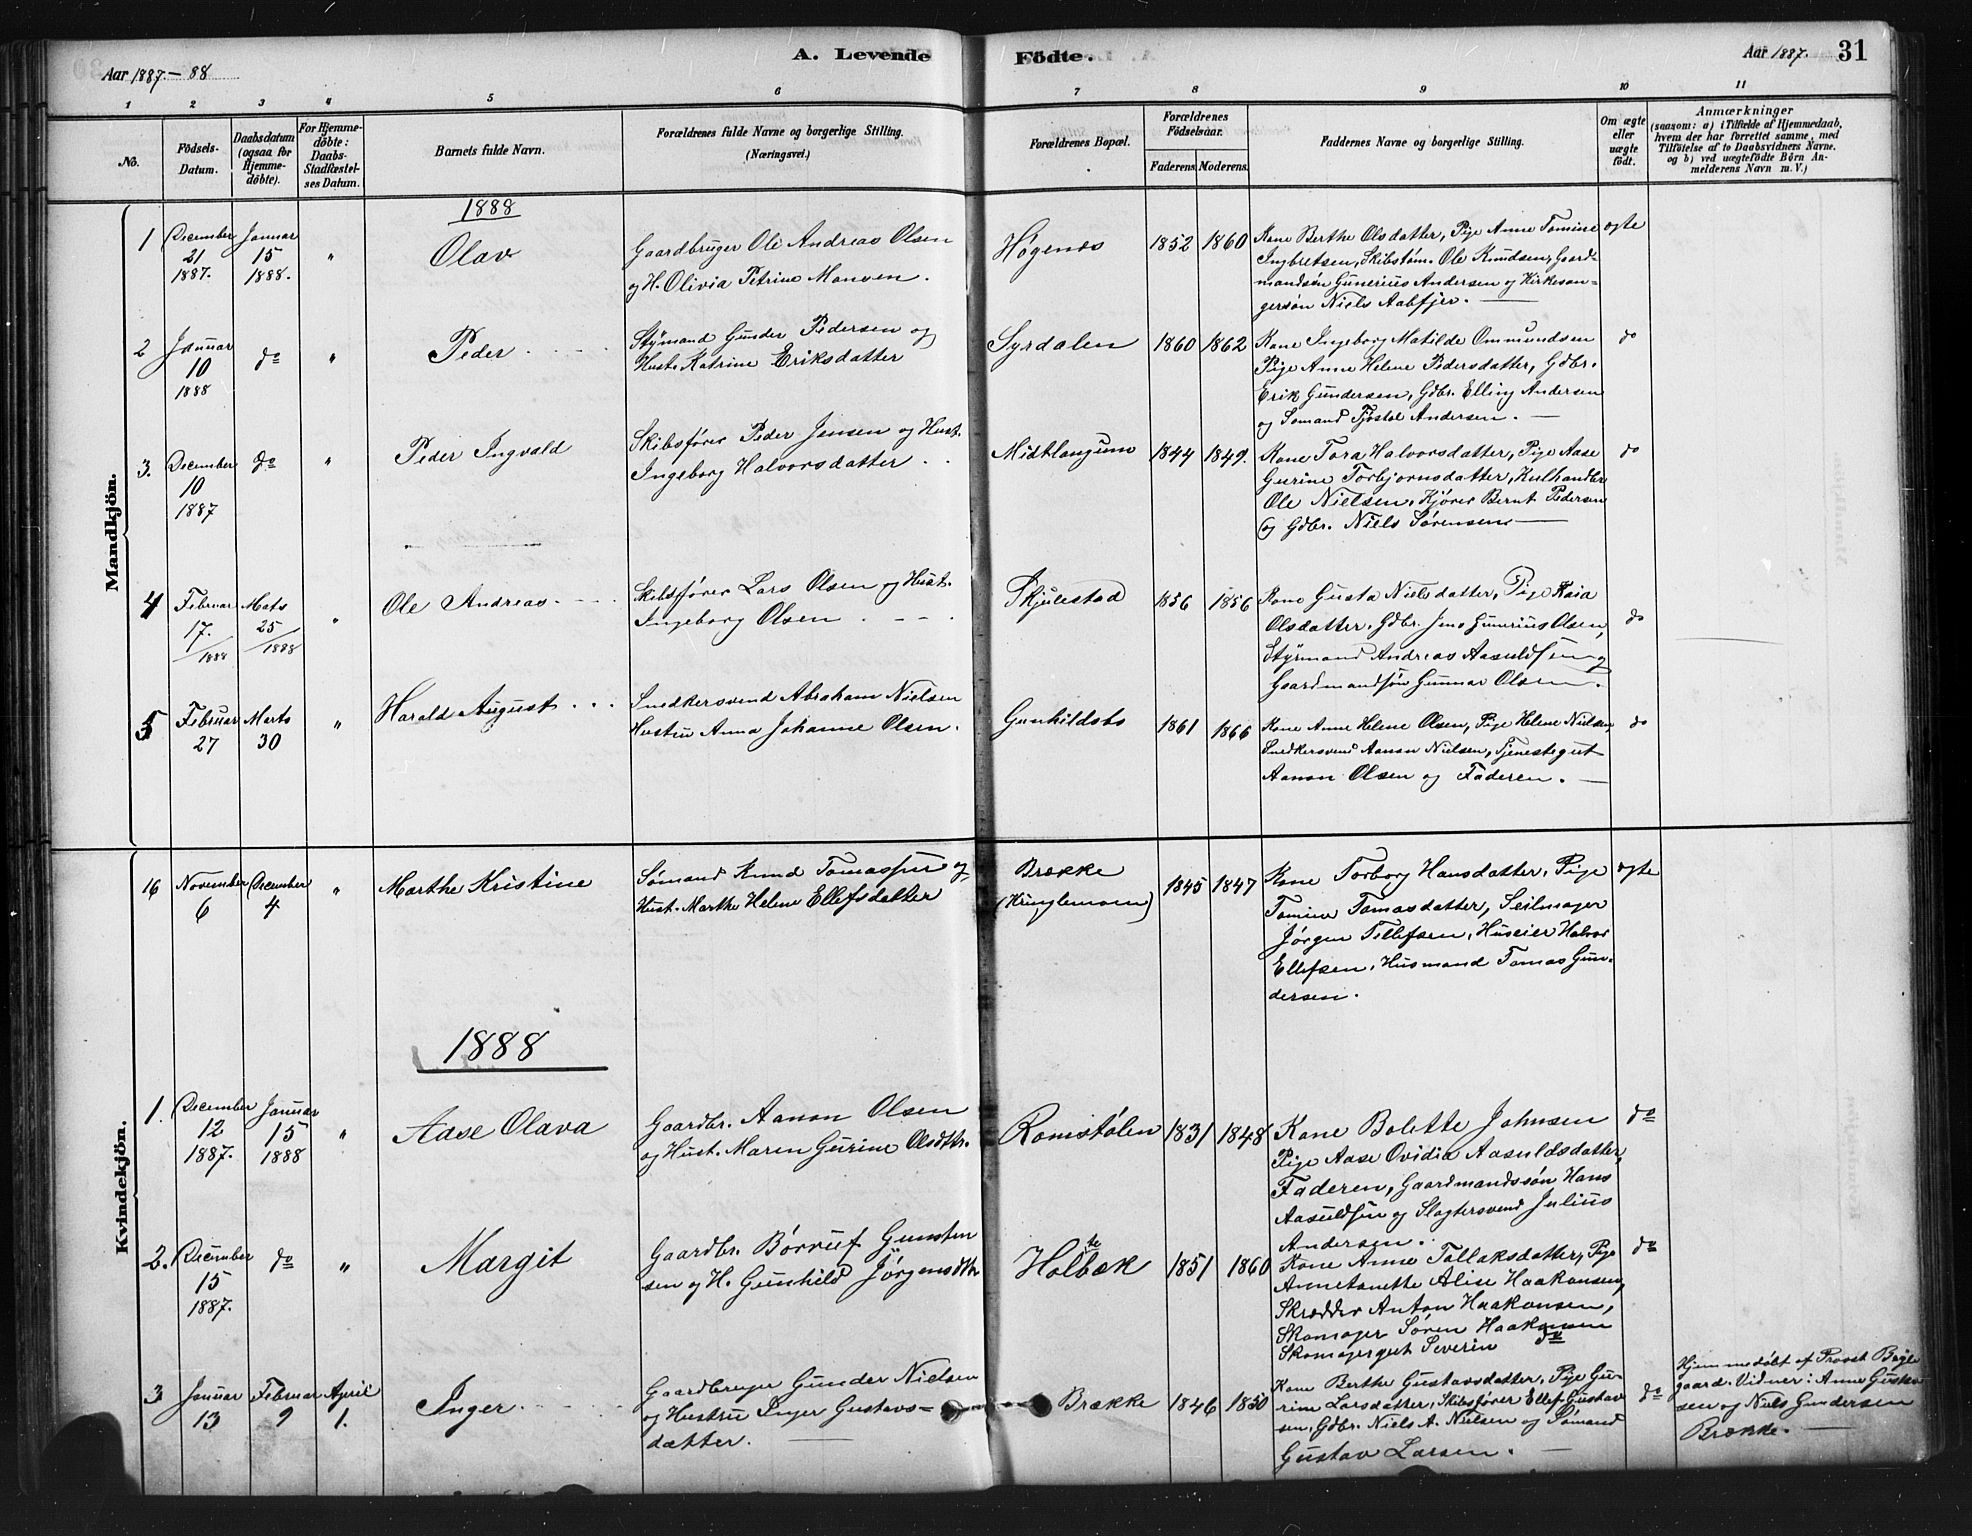 Aar 1887.-88
A. Levende
Födte.
Aar 1887.
31
1 2 3 4 5 6 7 8 9 10 11
No.
Födsels-
Datum.
Daabsdatum
(ogsaa for
Hjemme-
döbte).
For Hjemme-
döbte:
Daabs-
Stadfæstel-
ses Datum.
Barnets fulde Navn.
Forældrenes fulde Navne og borgerlige Stilling.
(Næringsvei.)
Forældrenes Bopæl.
Forældrenes
Födselsaar.
Faderens. Moderens.
Faddernes Navne og borgerlige Stilling.
Om ægte
eller
uægte
födt.
Anmærkninger
(saasom: a) i Tilfælde af Hjemmedaab,
hvem der har forrettet samme, med
Tilföielse af to Daabsvidners Navne.
og b) ved uægtefödte Börn An-
melderens Navn m. V.)
Mandkjön.
1888
1
December
21
1887.
Januar
15
1888.
"
Olav
Gaardbruger Ole Andreas Olsen
og H. Olivia Petrine Monsen.
Høgenes
1852 1860
Kone Berthe Olsdatter, Pige Anne Tomine
Ingbretsen, Skibstøm. Ole Knudsen, Gaard-
mandsøn Gunerius Andersen og Kirkesan-
gersøn Niels Aabfjer.
ægte
2
Januar
10
1888
do
"
Peder
Stymand Gunder Pedersen og
Hust. Katrine Eriksdatter
Syrdalen
1860 1862
Kone Ingeborg Matilde Ommundsen
Pige Anne Helene Pedersdatter, Gdbr.
Erik Gundersen, Gdbr. Elling Andersen
og Somand Tjostol Andersen.
do
3.
December
10
1887
do
"
Peder Ingvald
Skibsfører Peder Jensen og Hust.
Ingeborg Halvorsdatter
Midtlangum
1844 1849.
Kone Tora Halvorsdatter, Pige Aase
Gurine Torbjornsdatter, Kulhandler
Ole Nielsen, Kjører Bernt Pedersen
og Gdbr. Niels Sørensen
do
4
Februar
17.
/1888
Mats
25
/1888
"
Ole Andreas
Skibsfører Lars Olsen og Hust.
Ingeborg Olsen
Skjulestad
1856 1856
Kone Gusta Nielsdatter, Pige Kaia
Olsdatter, Gdbr. Jens Gunerius Olsen,
Styrmand Andreas Aasuldsen og
Gaardmandsøn Gunnar Olsen.
do
5
Februar
27
Marts
30
"
Harald August
Snedkersvend Abraham Nielsen
Hustru Anna Johanne Olsen.
Gunhildsbo
1861 1866
Kone Anne Helene Olsen, Pige Helene Nielsen,
Snedkersvend Aanon Nielsen, Tjenestegut
Aanon Olsen og Faderen.
do
Kvindekjön.
16
November
6
December
4
"
Marthe Kristine
Sømand Knud Tomassen og
Hust. Marthe Helene Ellefsdatter
Brække
(Kringlemoen)
1845 1847
Kone Torborg Hansdatter, Pige
Tomine Tomasdatter, Seilmager
Jørgen Tellefsen, Huseier Halvor
Ellefsen, Husmand Tomas Gun-
dersen.
ægte
1888
1.
December
12
1887.
Januar
15
1888
"
Aase Olava
Gaardbr. Aanon Olsen
og Hust. Maren Gurine Olsdtr.
Romstølen
1831 1848
Kone Bolette Johnsen
Pige Aase Ovidia Aasuldsdatter,
Faderen, Gaardmandssøn Hans
Aasuldsen og Slagtersvend Julius
Andersen.
do
2.
December
15
1887.
do
"
Margit
Gaardbr. Børruf Gunsten
sen og H. Gunhild Jörgensdtr
Holtebæk
1851 1860
Kone Anne Tallaksdatter, Pige
Annetonette Alise Haakonsen,
Skrædder Anton Haakonsen,
Skomager Søren Haakonsen
Skomagergut Severin do
do
3
Januar
13
Februar
9
April
1.
Inger
Gaardbruger Gunder Nielsen
og Hustru Inger Gustavs=
datter.
Brække
1846 1850
Kone Berthe Gustavsdatter, Pige Gu-
rine Larsdatter, Skibsfører Ellef Gustav
sen, Gdbr. Niels A. Nielsen og Somand
Gustav Larsen.
do
Hjemmedøbt af Provst Bøyle
gaard. Vidner: Anne Gustav
sen og Niels Gundersen
Brække.